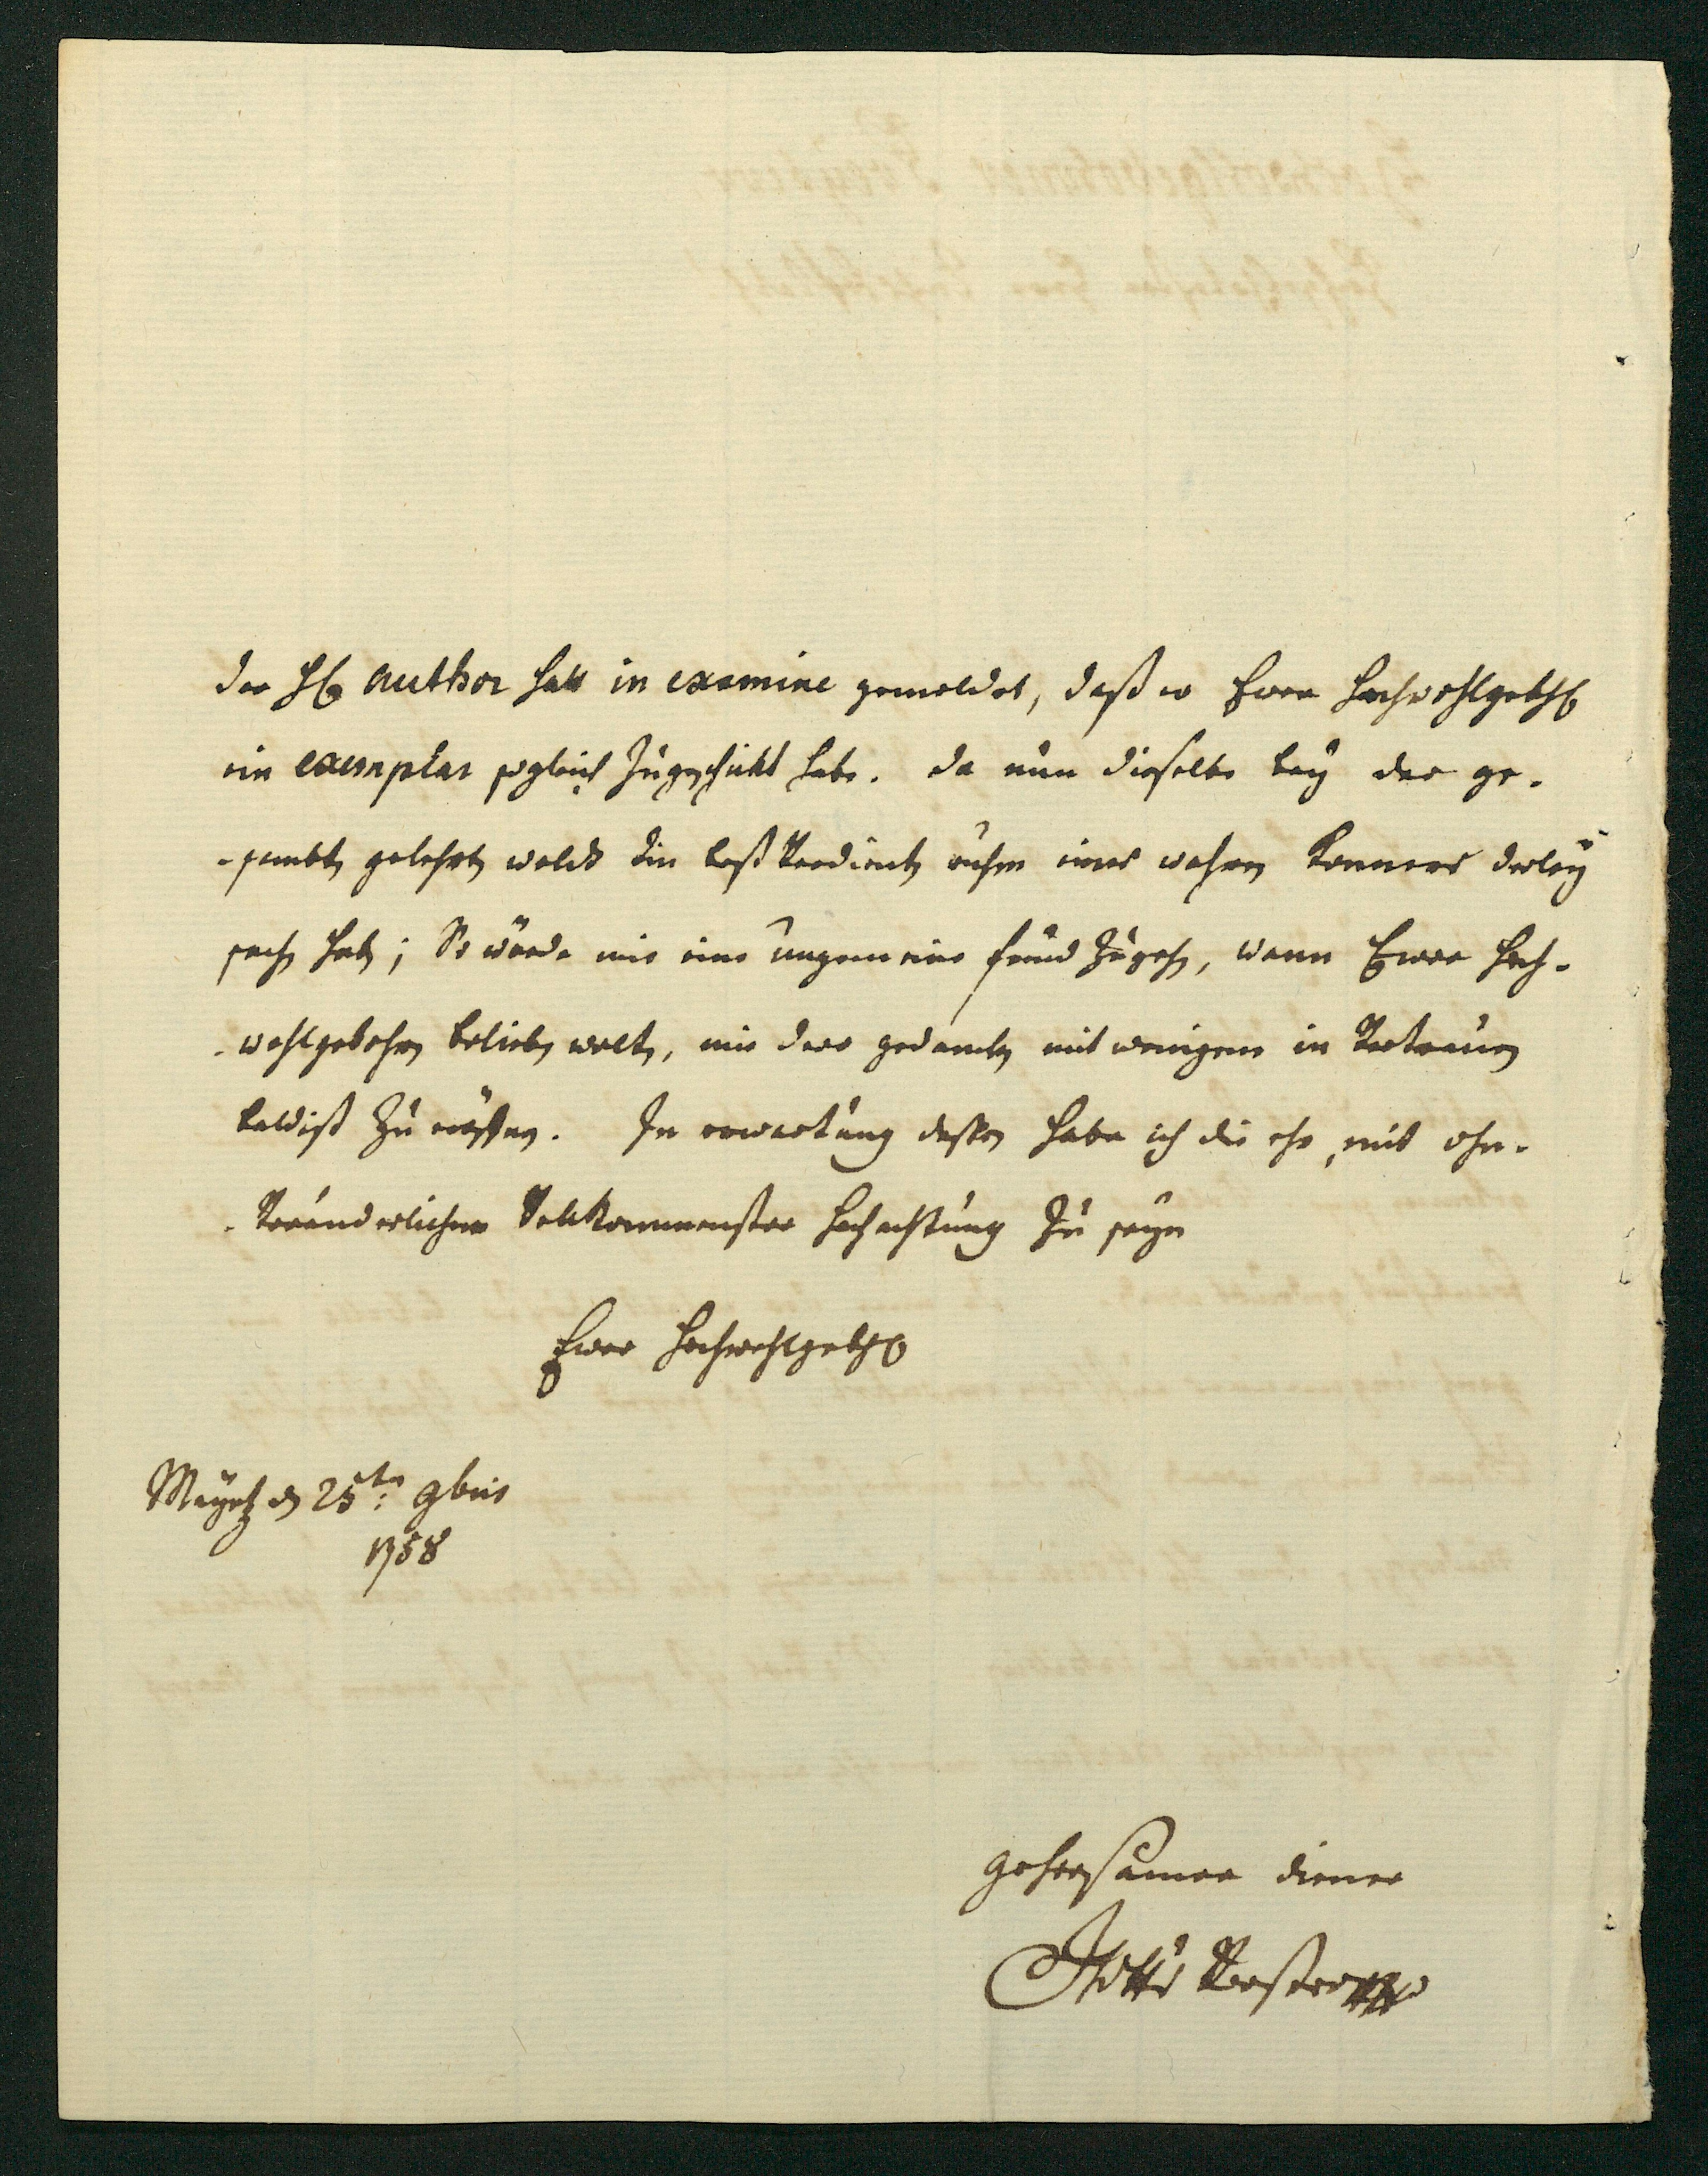 der H. author hatt in examine gemeldet, daß er Ewer Hochwohlgeb.
ein exemplar sogleich zugeschickt habe. da nun dieselbe bey der ge-
-sambten gelehrten welt den best verdienten ruhm eines wahren Kenners derley
sachen haben; So würde mir eine ungemeine freud zugehen, wann Ewer Hoch-
-wohlgebohren belieben wolten, mir dero gedancken mit wenigem in Vertrauen
baldist zu eröffnen. In erwartung dessen habe ich die ehr, mit ohn-
-Veränderlicher Vollkommenster Hochachtung zu seyn
Ewer Hochwohlgeb.
Mayntz den 25ten 9bris
1758
gehorsamer diener